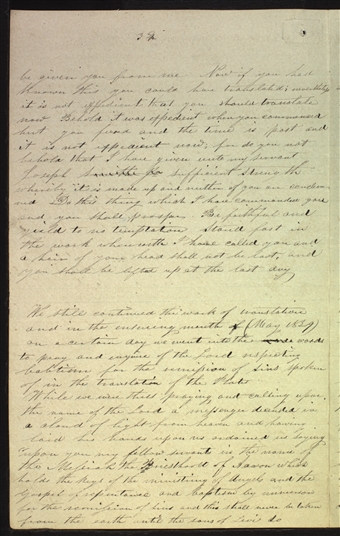 be given you from me. Now if you had
known this you could have translated; nevertheless
it is not expedient that you should translate
now Behold it was expedient when you commenced
but you feared and the time is past and
it is not expedient now; for do you not
behold that I have given unto my servant
Joseph sufficient strength
whereby it is made up and neither of you are condemned
Do this thing which I have commanded you
and you shall prosper. Be faithful and
yield to no temptation Stand fast in
the work wherewith I have called you and
a hair of your head shall not be lost, and
you shall be lifted up at the last day
We still continued the work of translation
and in the ensuing month of (May 1829)
on a certain day we went into the woods
to pray and inquire of the Lord respecting
baptism for the remission of sins spoken
of in the translation of the Plates
While we were thus praying and calling upon
the name of the Lord a messenger descended in
a cloud of light from heaven and having
laid his hands upon us ordained us saying
upon you my fellow servants in the name of
the Messiah the Priesthood of Aaron which
holds the keys of the ministring of Angels and the
Gospel of repentance and baptism by immersion
for the remission of sins and this shall never be taken
from the earth until the sons of Levi do